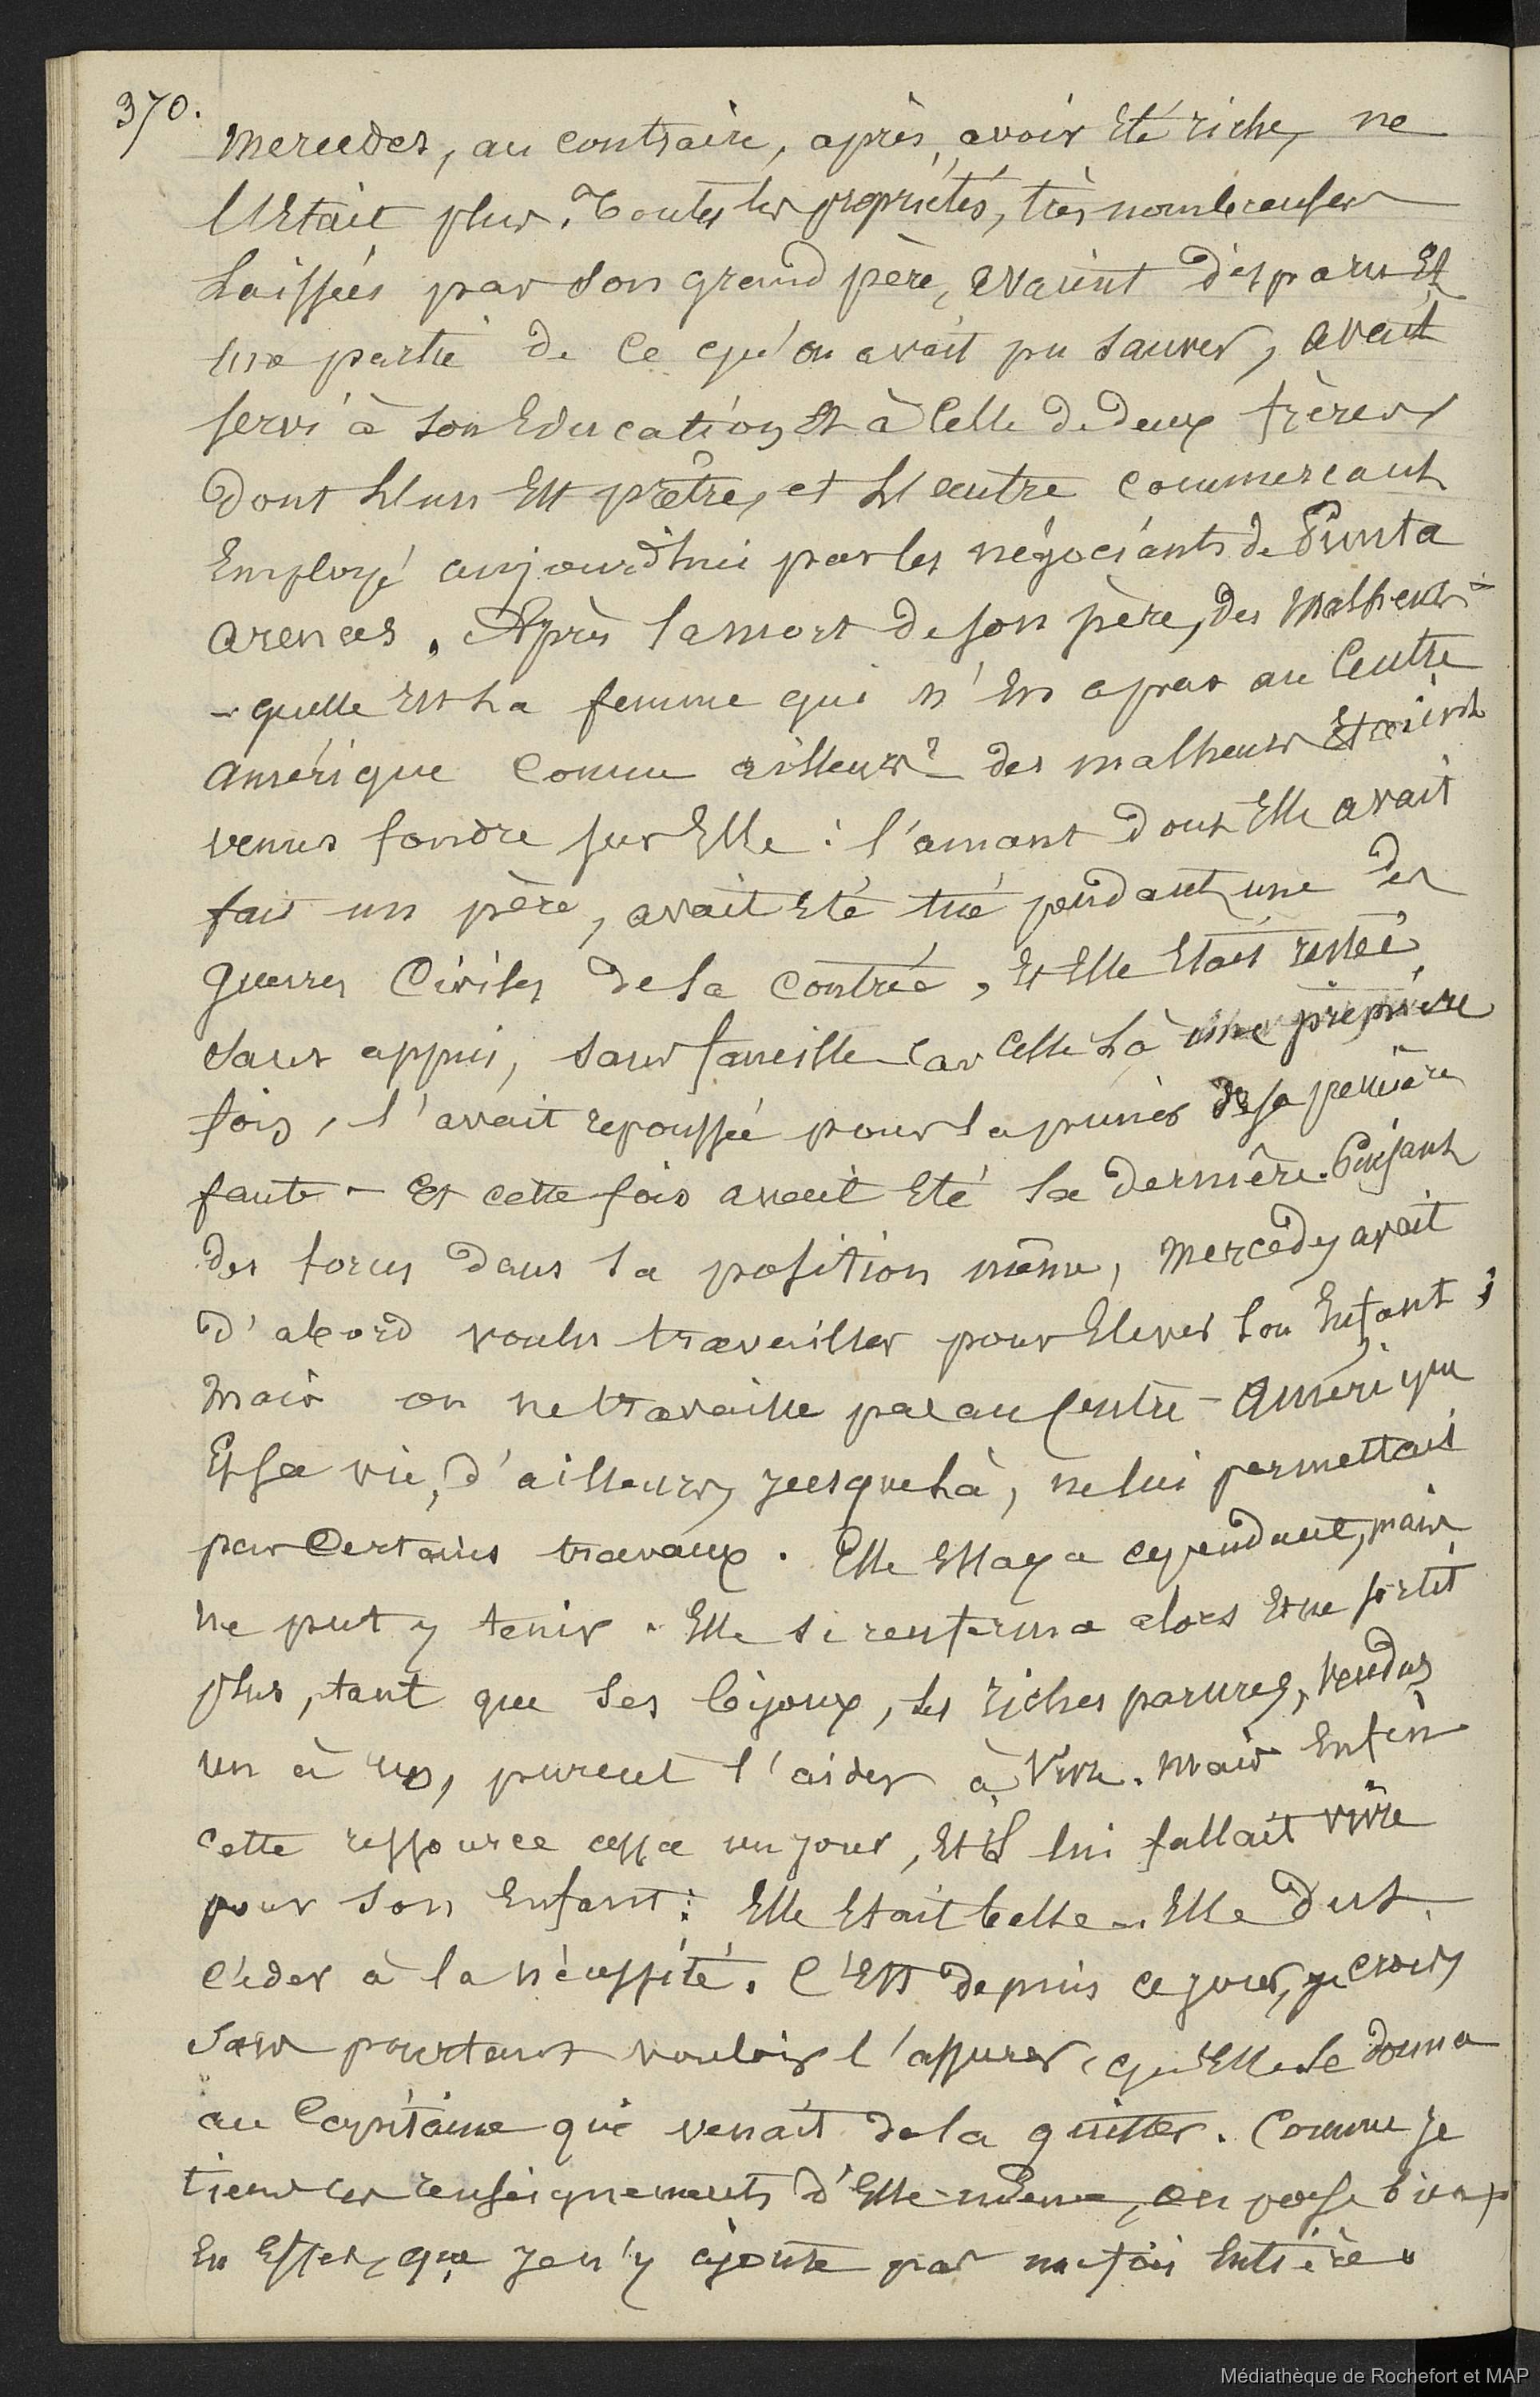 370.
Mercedes, au contraire, après, avoir été riche, ne
l'était plus. Toutes les propriétés, très nombreuses
laissées par son grand père, avaient disparu et
une partie de ce qu'on avait pu sauver, avait
servi à son education et à celle de deux frères
dont l'un est prêtre, et l'autre commercant
employé aujourd'hui par les négociants de Punta
arenas. Après la mort de son père, des malheurs -
- quelle est la femme qui n'en a pas au Centre
amérique comme ailleurs ? - des malheurs étaient
venus fondre sur elle : l'amant dont elle avait
fait un père, avait été tué pendant une des
guerres civiles de la contrée, et elle était restée
sans appui, sans famille car celle là une première
fois, l'avait repoussée pour la punir de sa première
faute - et cette fois avait été la dernière. Puisant
des forces dans sa position même, Mercedes avait
d'abord voulu travailler pour elever son enfant ;
mais on ne travaille pas au Centre-Amérique
et sa vie, d'ailleurs, jusque là, ne lui permettait
pas certains travaux. Elle essaya cependant, mais
ne put y tenir. Elle se renferma alors et ne sortit
plus, tant que ses bijoux, ses riches parures, vendus
un à un, purent l'aider à vivre. Mais enfin
cette ressource cessa un jour, et il lui fallait vivre
pour son enfant : elle etait belle... elle dut
céder à la nécessité. C'est depuis ce jour, je crois,
sans pourtant vouloir l'assurer, qu'elle se donna
au Capitaine qui venait de la quitter. Comme je
tiens ces renseignements d'elle-même, on pense bien,
en effet, que je n'y ajoute pas ma foi entière.
Médiathèque de Rochefort et MAP